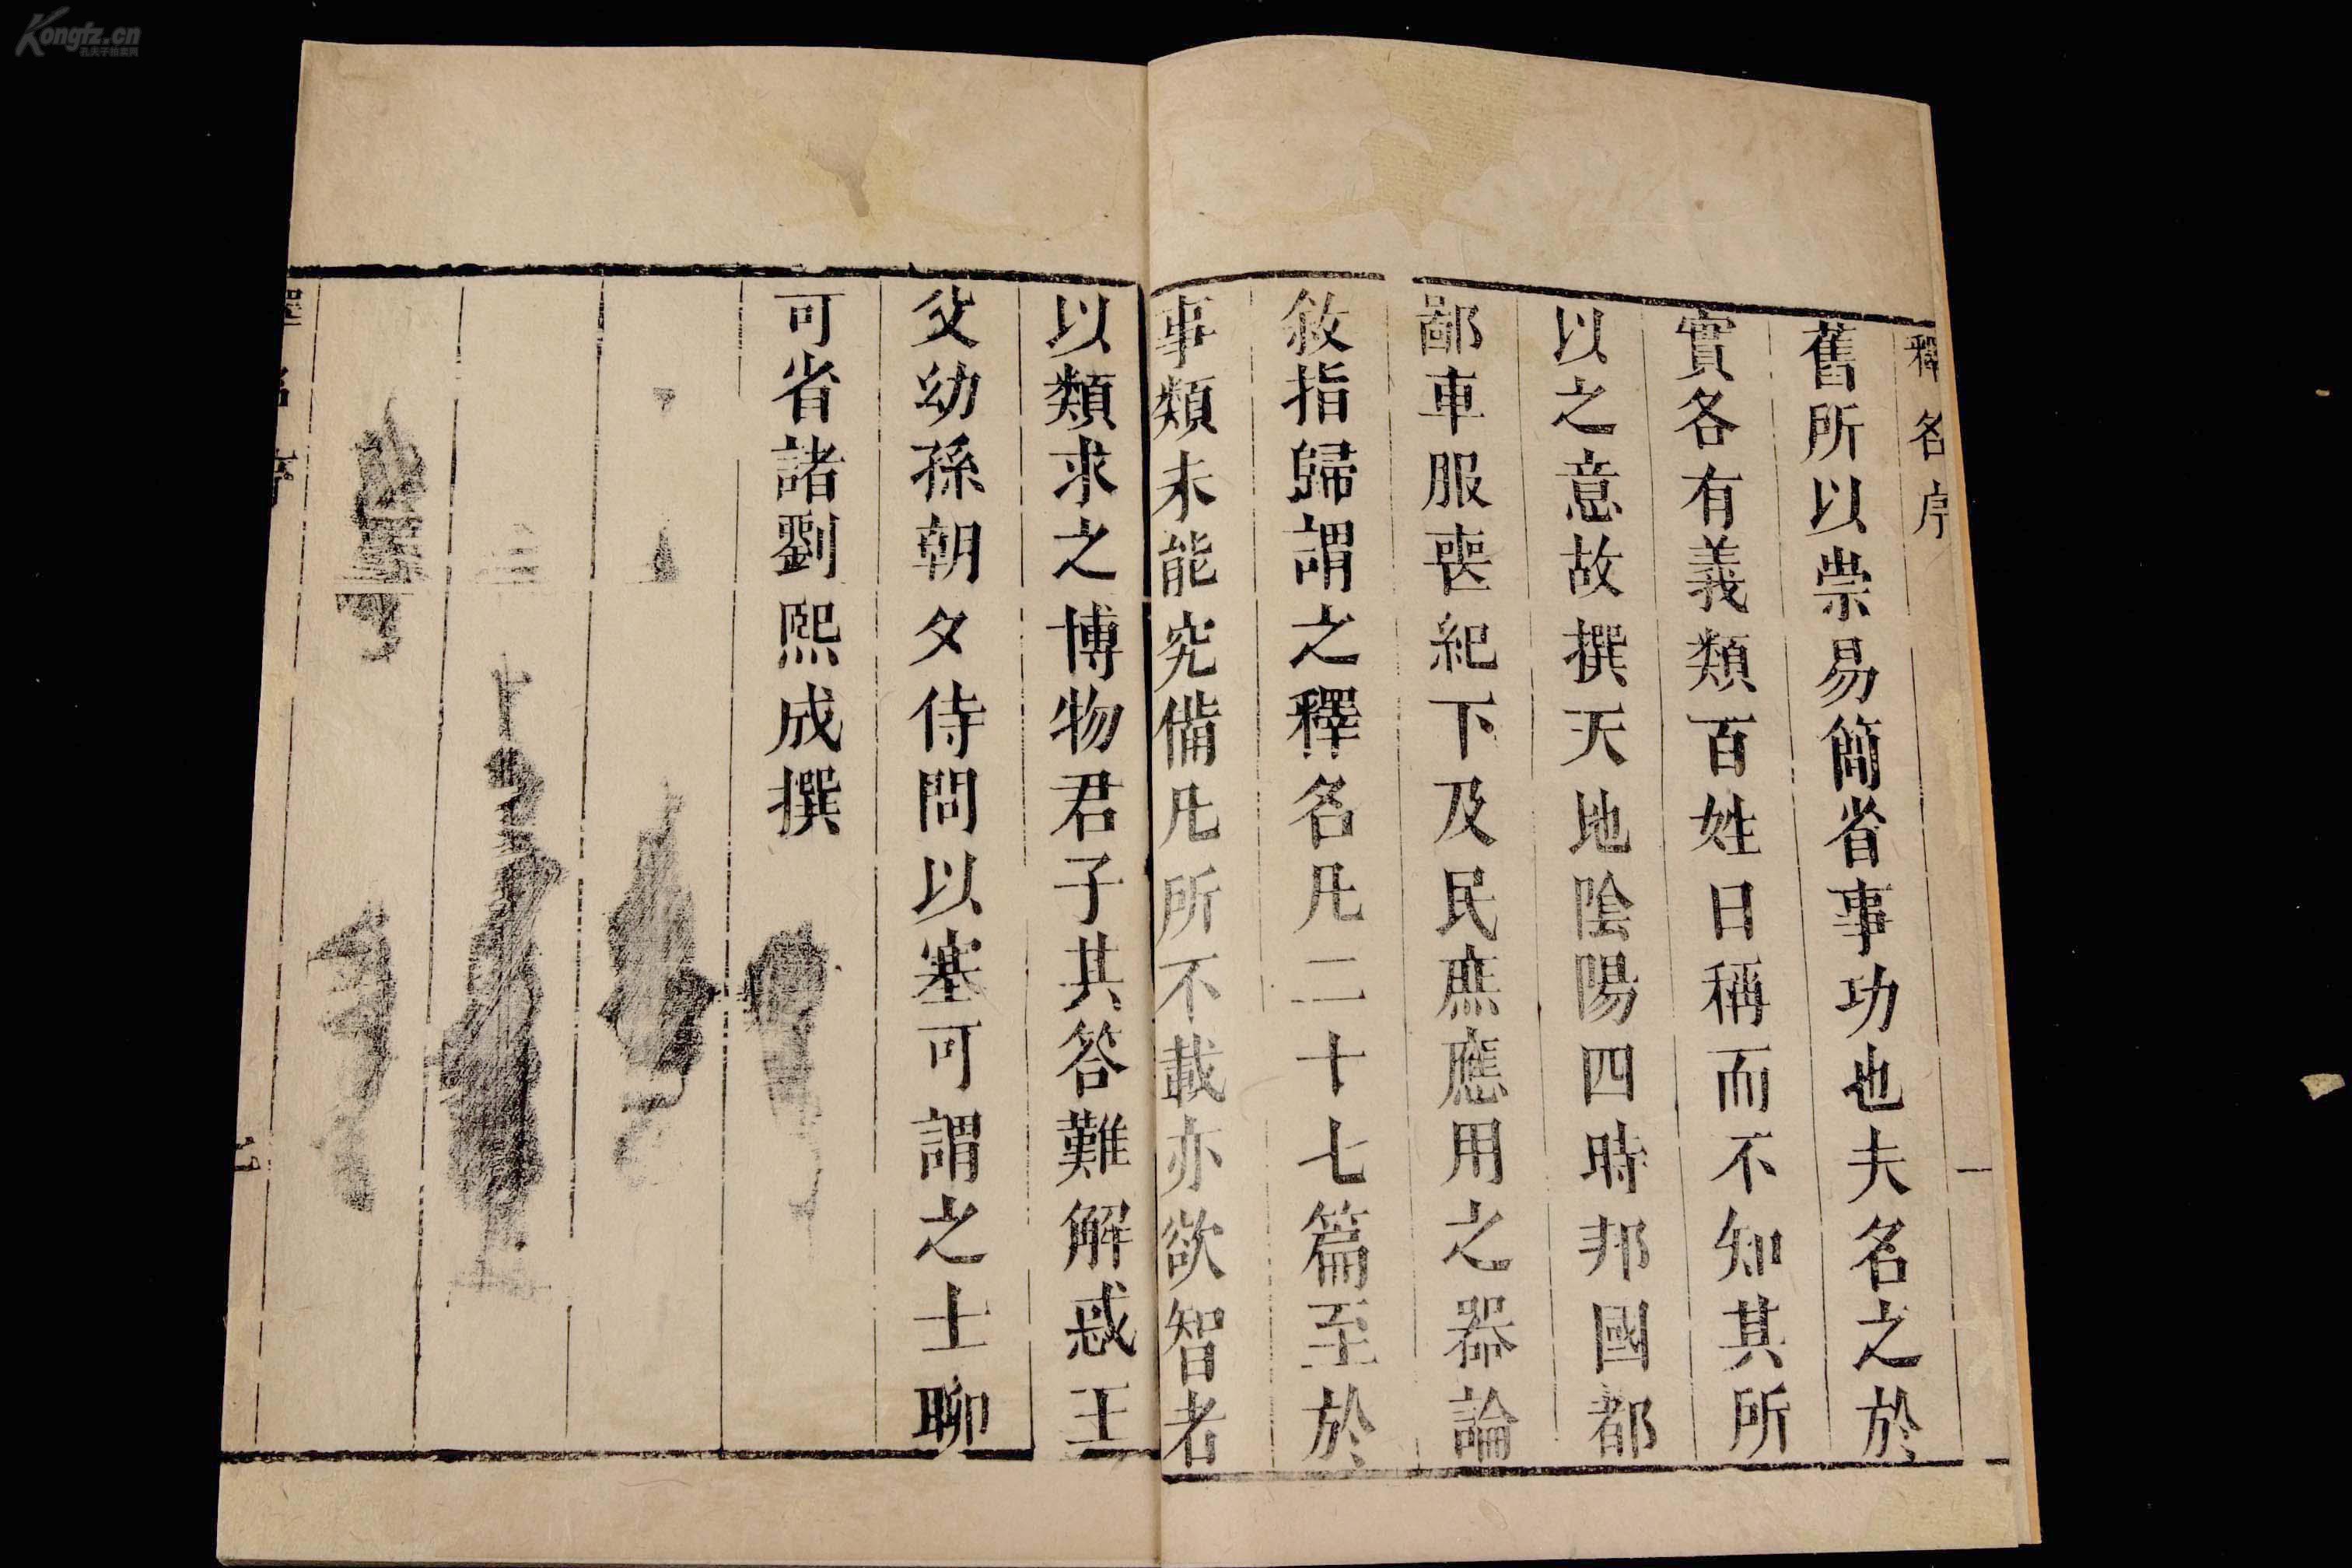 Kongfz.cn
孔夫子拍卖网
釋名序
一
舊所以崇易簡省事功也夫名之於
實各有義類百姓日稱而不知其所
以之意故撰天地陰陽四時邦國都
鄙車服喪紀下及民庶應用之器論
敘指歸謂之釋名凡二十七篇至於
事類未能究備凡所不載亦欲智者
以類求之博物君子其答難解惑王
父幼孫朝夕侍問以塞可謂之士聊
可省諸劉熙成撰